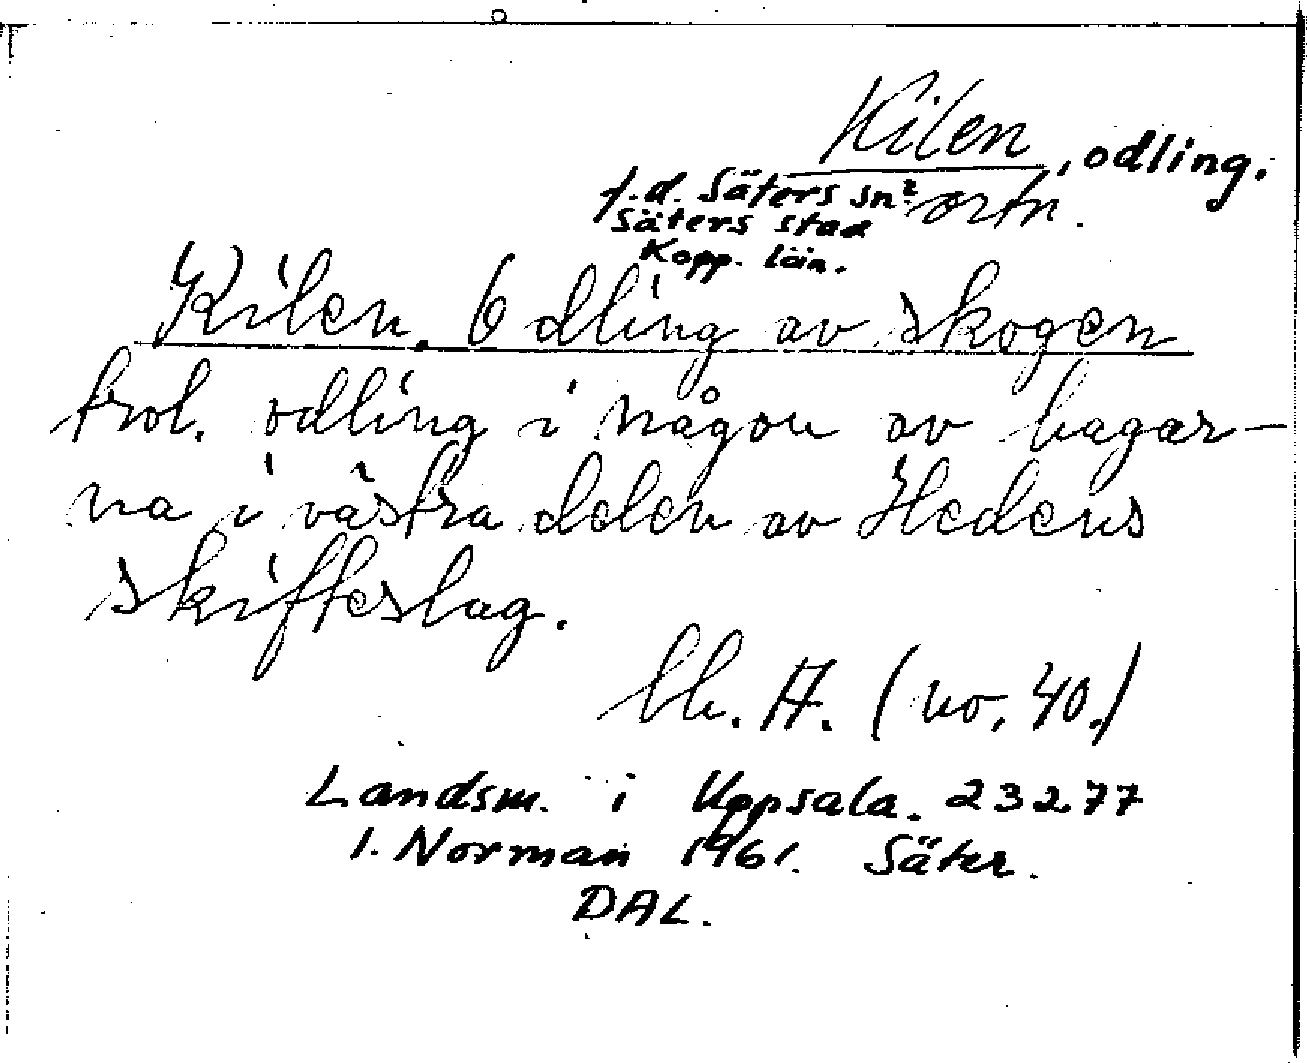 Kilen, odling.
f.d. Säters sn? ortn.
Säters stad
Kopp. län.
Kilen. Odling av skogen
trol. odling i någon av hagar-
na i västra delen av Hedens
skifteslag.
bl. A. (no. 40.)
Landsm. i Uppsala. 23277
I. Norman 1961. Säter.
DAL.